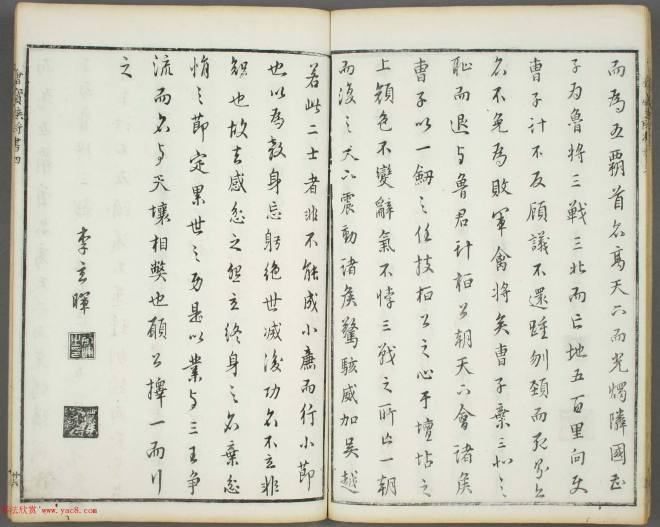 而為五霸首名高天下而光燭隣國曹
子為魯將三戰三北而亡地五百里向使
曹子計不反顧議不還踵刎頸而死則亦
名不免為敗軍禽將矣曹子棄三北之
恥而退与魯君計桓公朝天下會諸侯
曹子以一劔之任枝桓公之心于壇坫之
上顏色不變辭氣不悖三戰之所亡一朝
而復之天下震動諸侯驚駭威加吳越
若此二士者非不能成小廉而行小節
也以為殺身忘躬絕世滅後功名不立非
智也故去感忿之怨立終身之名棄忿
悁之節定累世之功是以業与三王爭
流而名与天壤相獘也願公擇一而行
之
李玄暉
書法欣賞 www.yac8.com